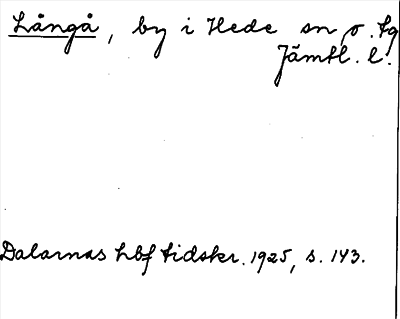 Långå, by i Hede sn o. tg
Jämtl. l.
Dalarnas hbf tidskr. 1925, s. 143.